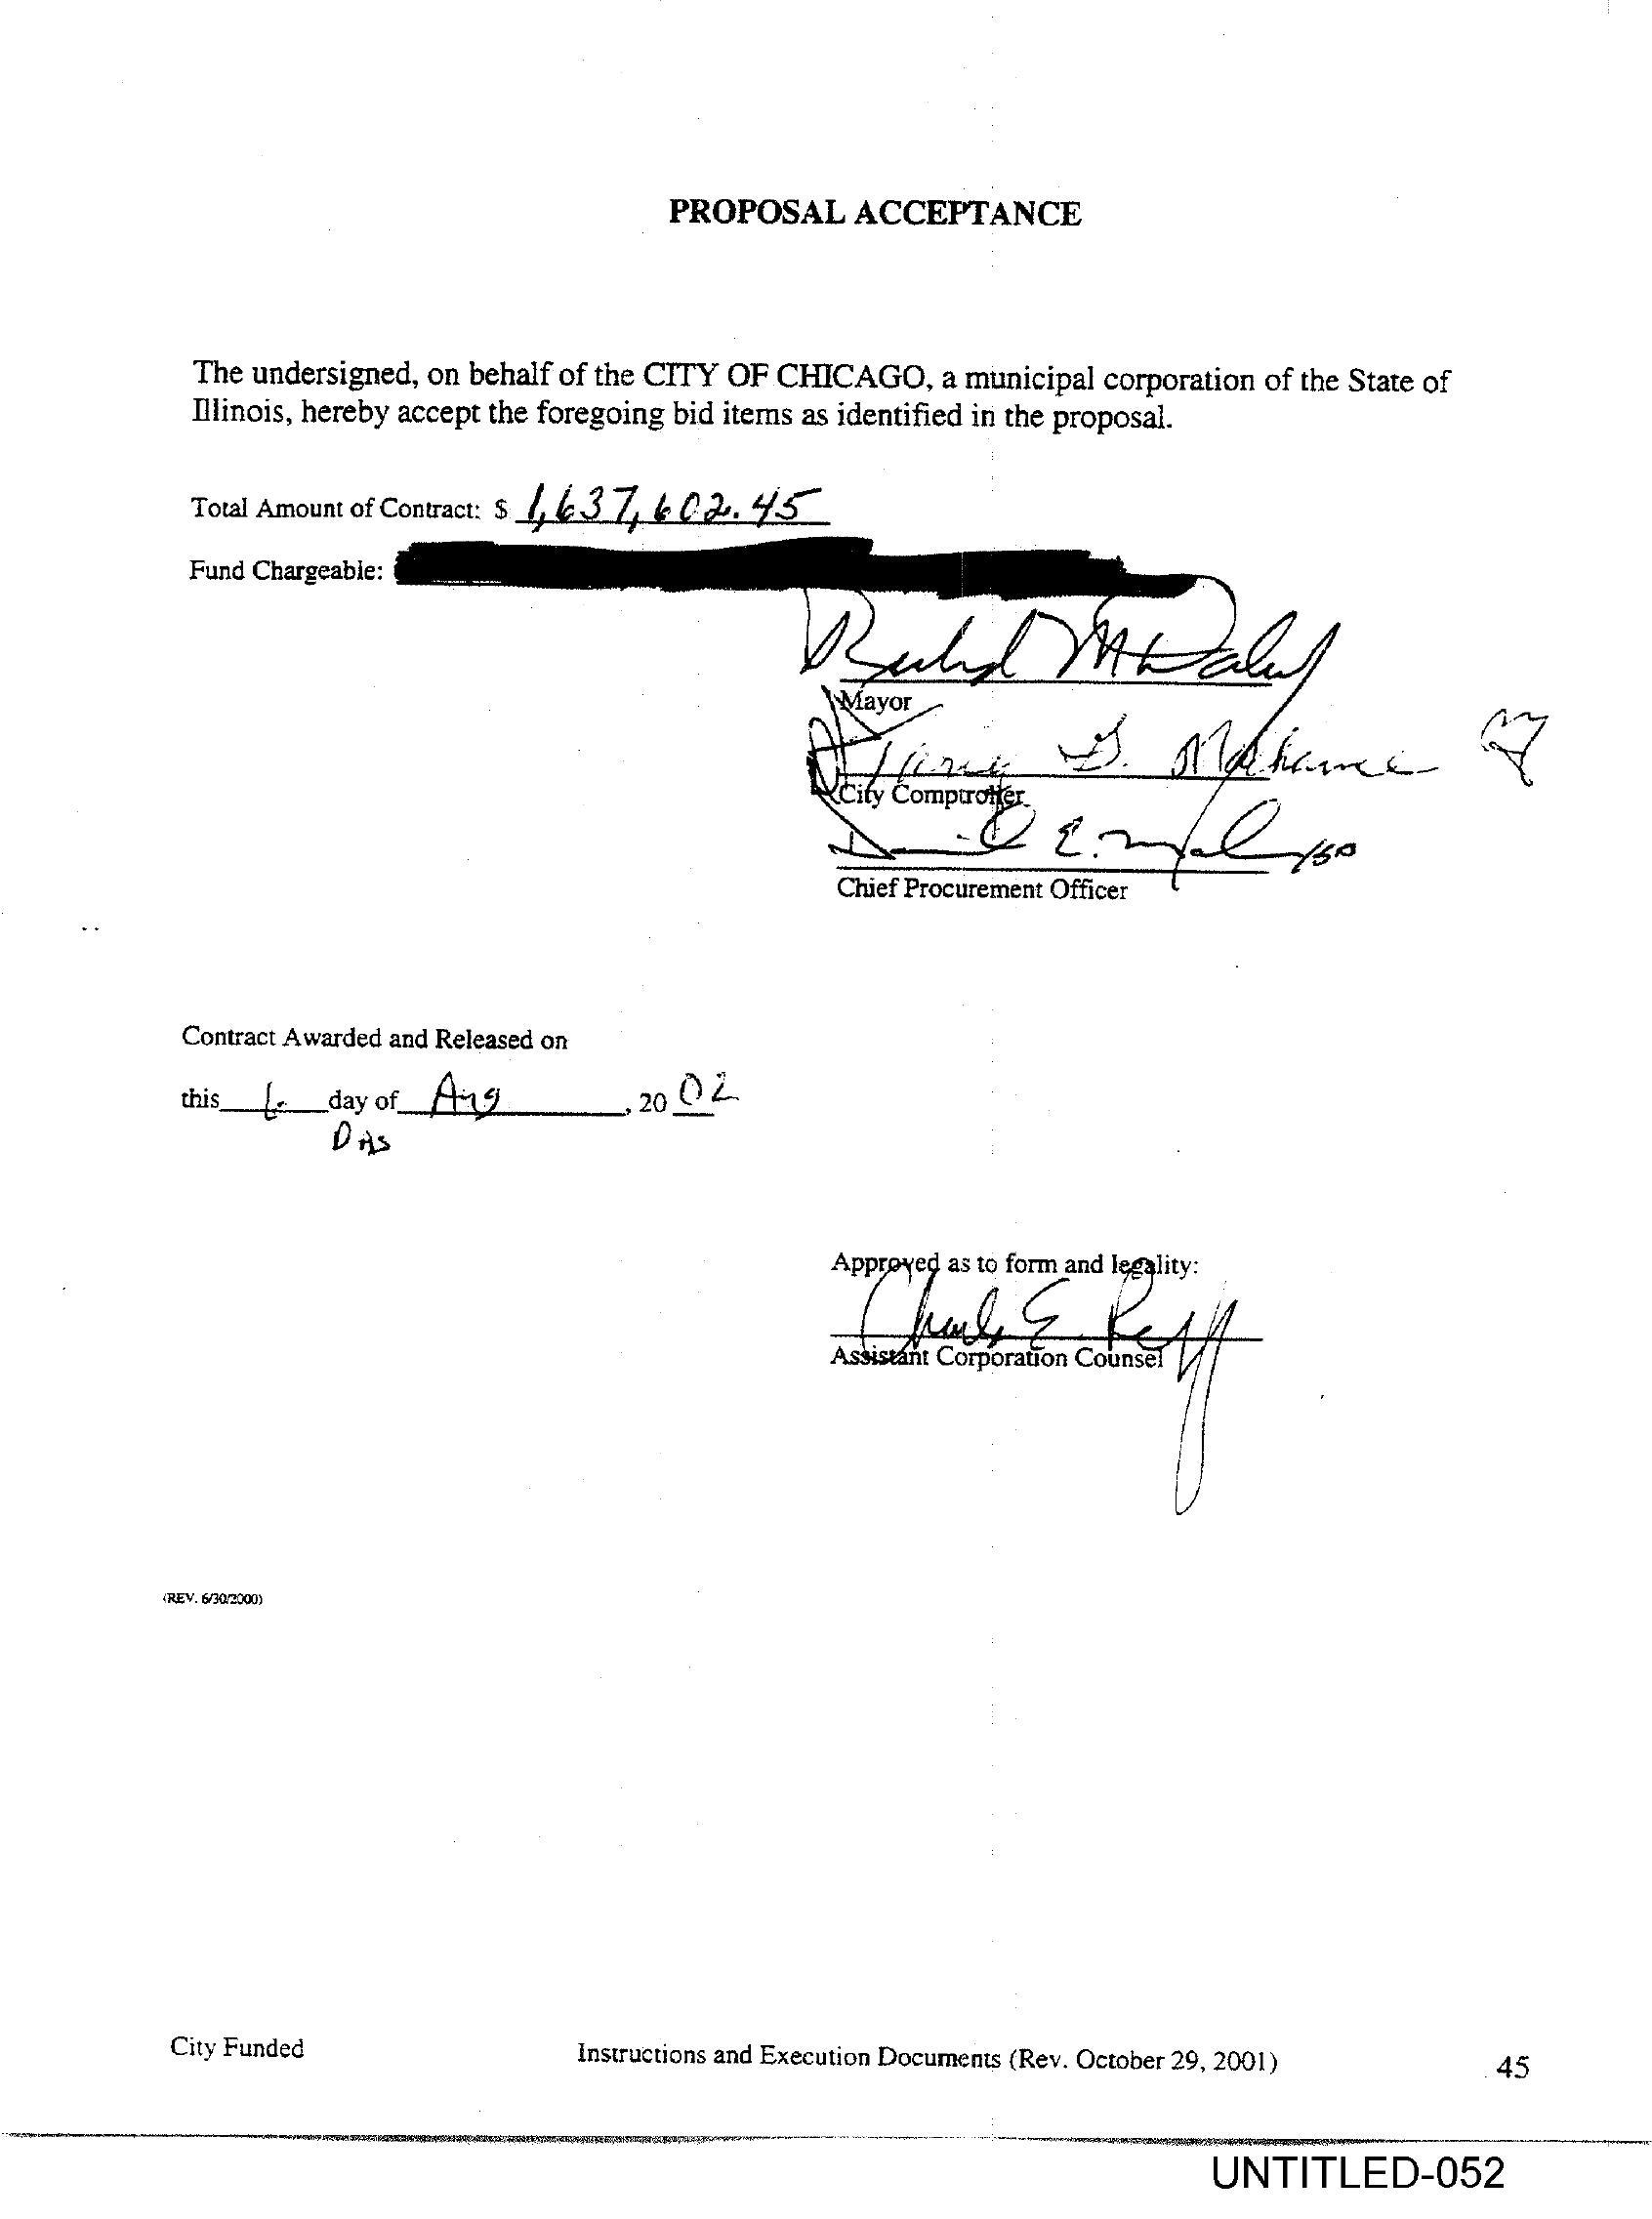 PROPOSAL ACCEPTANCE
The undersigned, on behalf of the CITY OF CHICAGO, a municipal corporation of the State of
Illinois, hereby accept the foregoing bid items as identified in the proposal.
Total Amount of Contract: $ 1,637,602.45
Fund Chargeable:
Richard M Daley
Mayor
City Comptroller
Daniel E.
Chief Procurement Officer
Contract Awarded and Released on
this 6 day of Aug, 20 02
DAS
Approved as to form and legality:
Charles E.
Assistant Corporation Counsel
(REV. 6/30/2000)
City Funded Instructions and Execution Documents (Rev. October 29, 2001) 45
UNTITLED-052